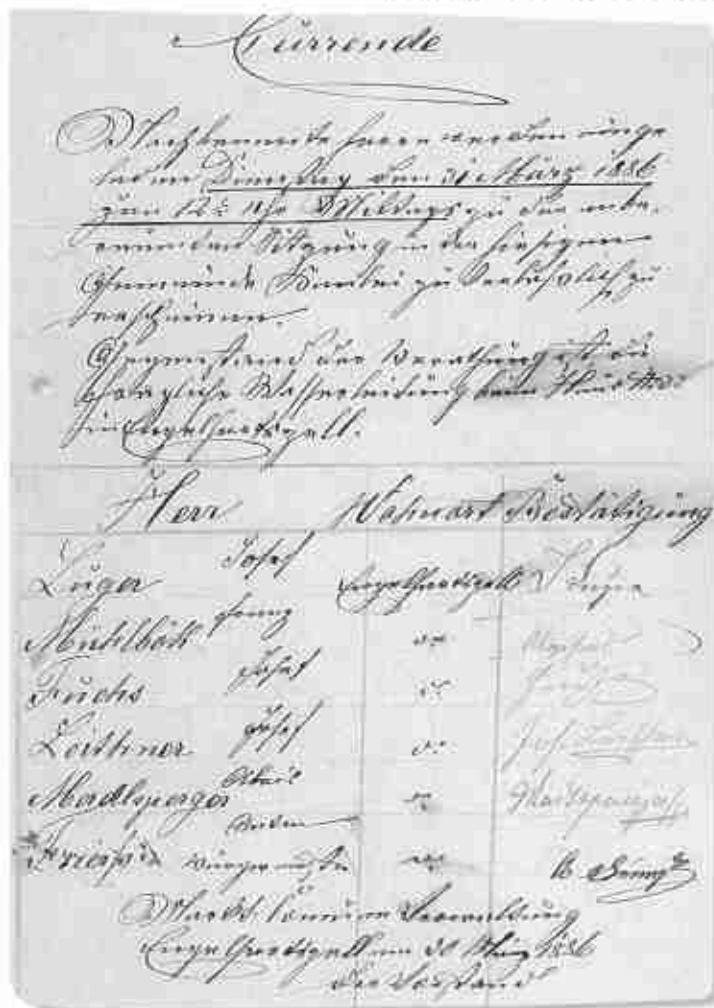 Currende
Nachbenannte Herren werden einge
laden Dienstag den 30 März 1886
zum 12 Uhr Mittags zu der anbe-
raumten Sitzung in der hiesigen
Gemeinde Kanzlei zu
erscheinen.
Gegenstand der Berathung ist die
Wasserleitung beim Haus
in Engelhartszell.
Herr Wohnort Bestätigung
Luger Josef Engelhartszell
Mühlböck Franz do
Fuchs Josef do Fuchs
Leithner Josef do Jos. Leithner
Madlsperger do Madlsperger
Bürgermeister do
Markt Commune Verwaltung
Engelhartszell am 30 März 1886
Der Vorstand